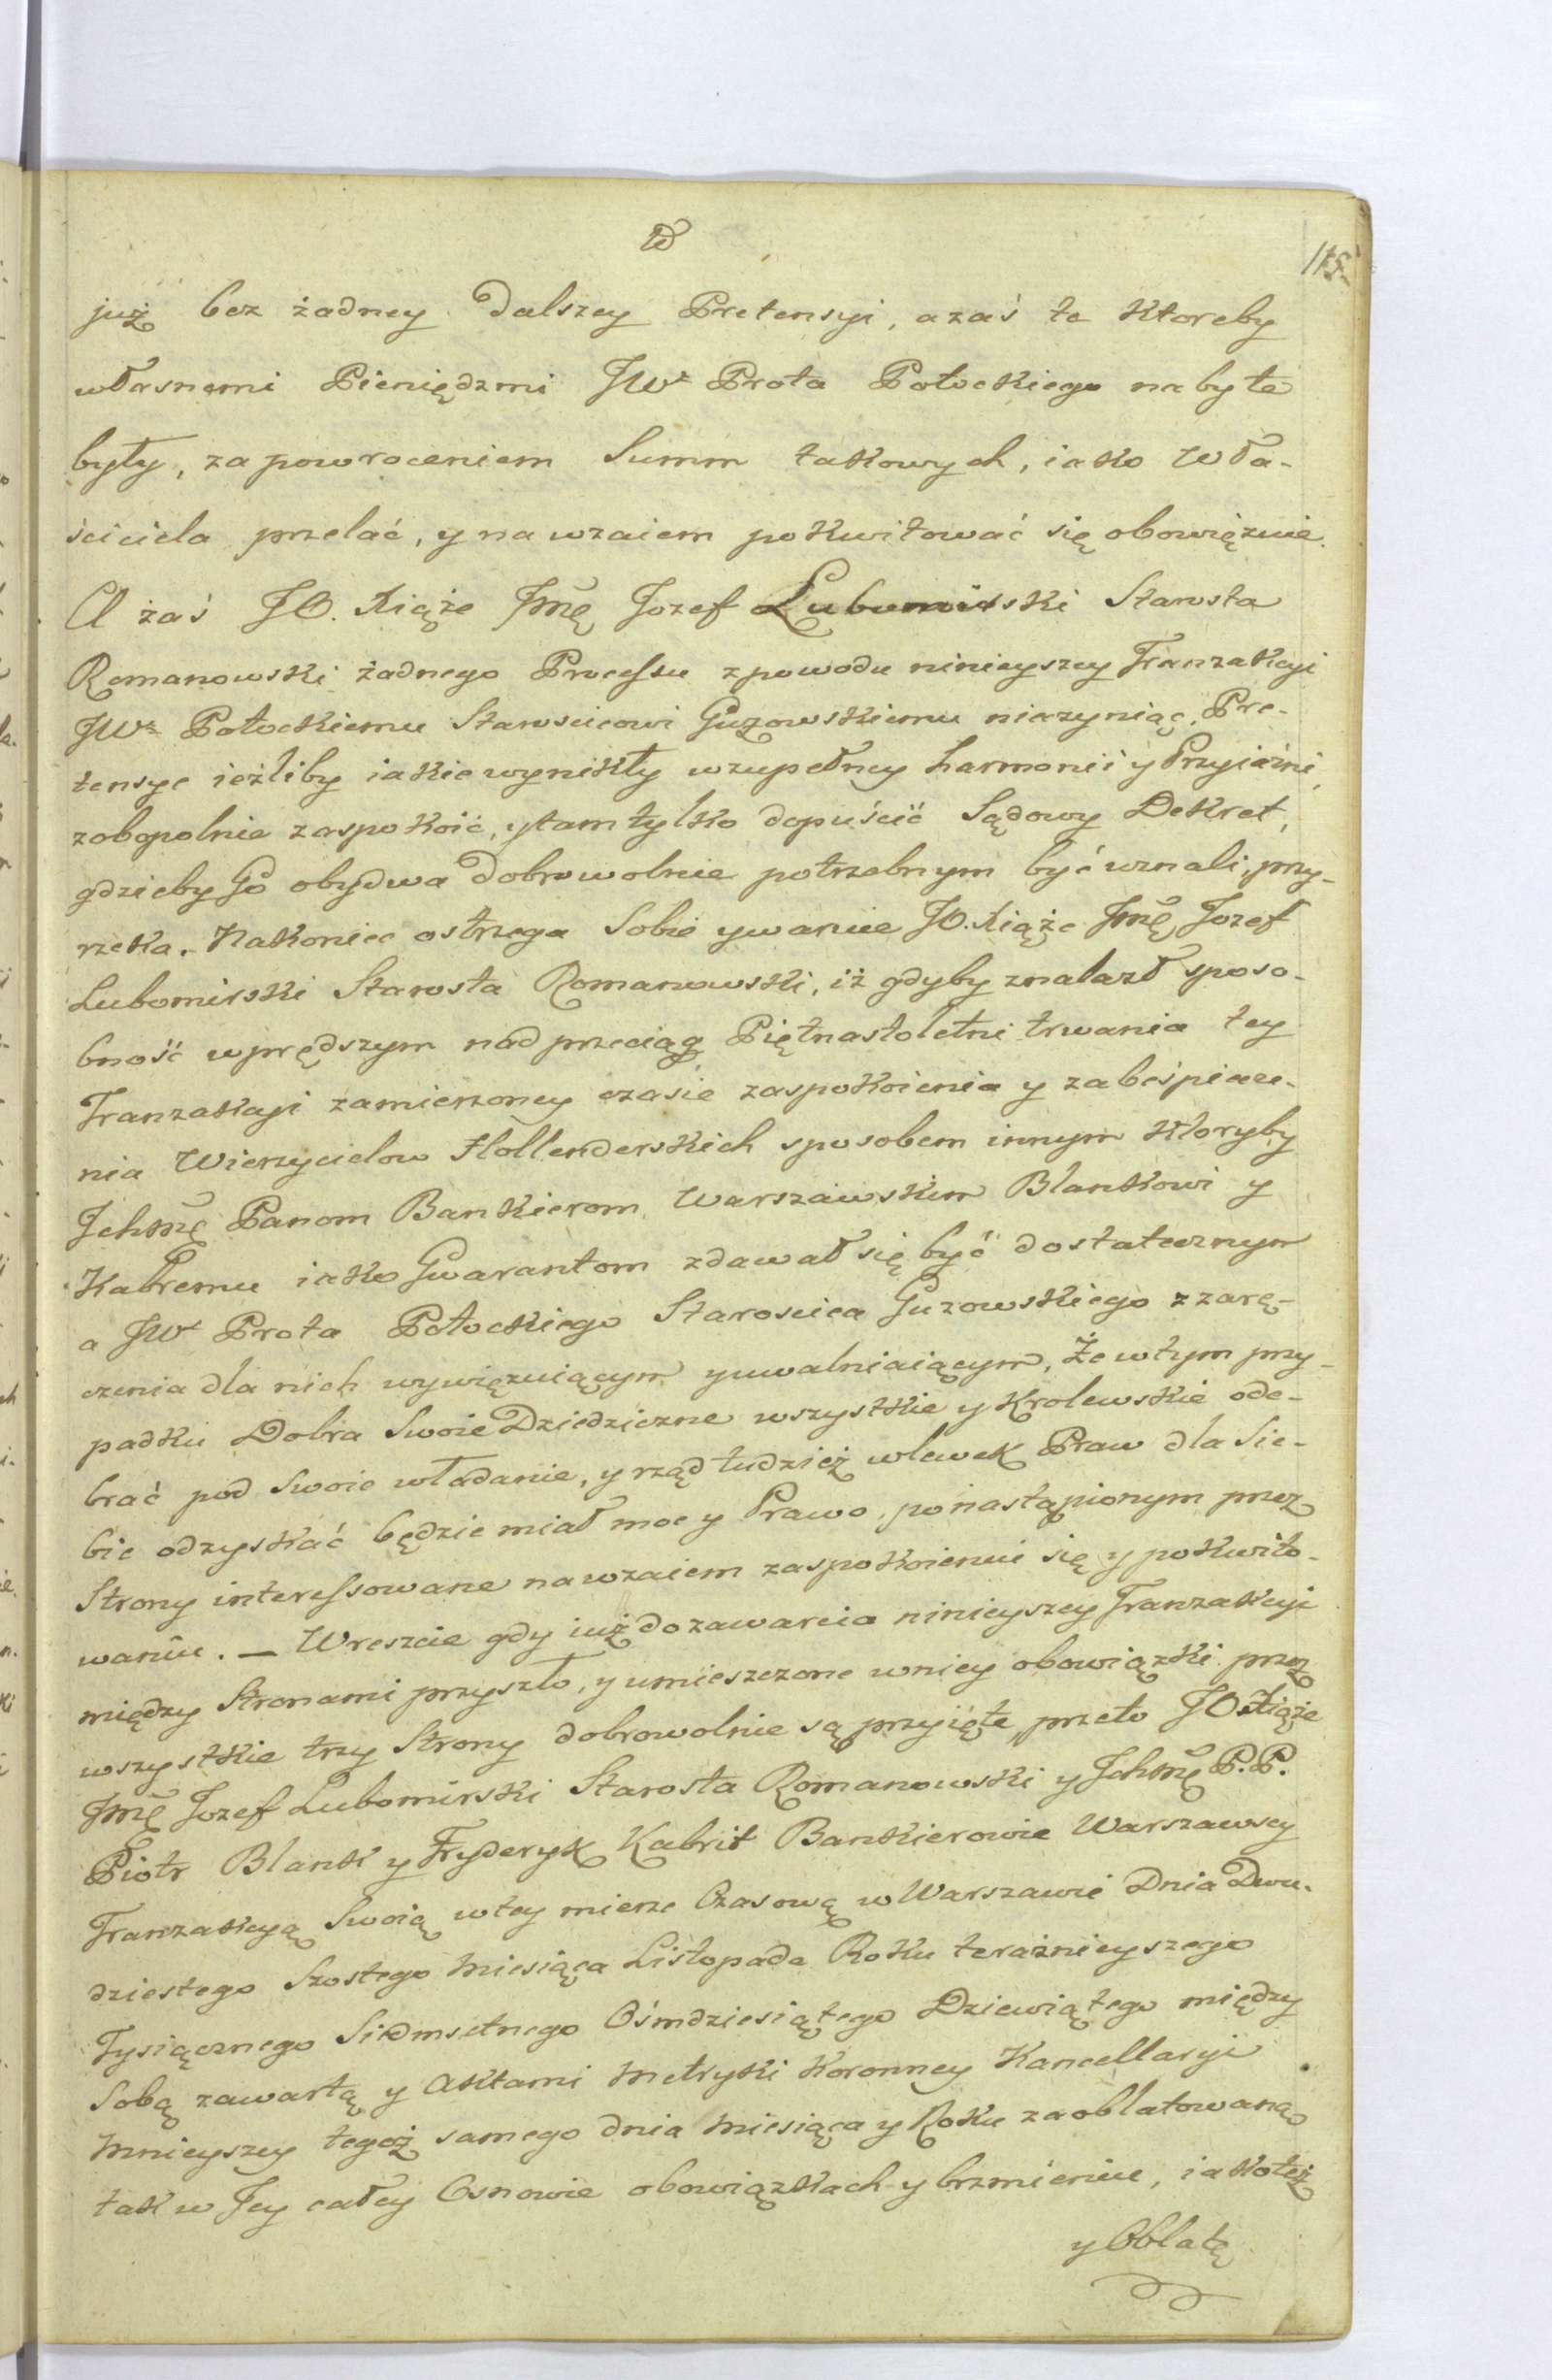 115.
już bez żadney dalszey Pretensyi, a zaś te ktoreby
własnemi Pieniędzmi JWo Prota Potockiego nabyte
były, za powroceniem Summ takowych, iako Wła-
ściciela przelać, y na wzaiem pokwitować się obowięzuie.
A zaś JO. Xiąże Jmę Jozef Lubomirski Starosta
Romanowski żadnego Processu z powodu ninieyszey Tranzakcyi
JWu Potockiemu Starościcowi Guzowskiemu nieczyniąc, Pre-
tensye ieżliby iakie wynikły w zupełney harmonii y Przyiaźni,
zobopolnie zaspokoić, y tam tylko dopuścić Sądowy Dekret,
gdzieby Go obydwa dobrowolnie potrzebnym być uznali, przy-
rzeka. Nakoniec ostrzega Sobie y waruie JO. Xiąże Jmę Jozef
Lubomirski Starosta Romanowski, iż gdyby znalazł sposo-
bność w prędszym nad przeciąg Piętnastoletni trwania tey
Tranzakcyi zamierzoney czasie zaspokoienia y zabeśpiecze-
nia Wierzycielow Hollenderskich sposobem innym ktoryby
Ichmę Panom Bankierom Warszawskim Blankowi y
Kabremu iako Gwarantom zdawał się być dostatecznym
a JWo Prota Potockiego Starościca Guzowskiego z zarę-
czenia dla nich wywięzuiącym y uwalniaiącym, Że w tym przy-
padku Dobra Swoie Dziedziczne wszystkie y Krolewskie ode-
brać pod Swoie władanie, y rząd tudzież wlewek Praw dla Sie-
bie odzyskać będzie miał moc y Prawo, po nastąpionym przez
Strony interessowane nawzaiem zaspokoieniu się y pokwito-
waniu. — Wreszcie gdy iuż do zawarcia ninieyszey Tranzakcyi
między Stronami przyszło, y umieszczone w niey obowiązki przez
wszystkie trzy Strony dobrowolnie są przyięte, przeto JO. Xiąże
Jmę Jozef Lubomirski Starosta Romanowski y Ichmę P.P.
Piotr Blank y Fryderyk Kabrit Bankierowie Warszawscy
Tranzakcyą Swoią w tey mierze Czasową w Warszawie Dnia Dwu-
dziestego Szostego Miesiąca Listopada Roku teraźnieyszego
Tysiącznego Siedmsetnego Ośmdziesiątego Dziewiątego między
Sobą zawartą y Aktami Metryki Koronney Kancellaryi
Mnieyszey tegoż samego dnia Miesiąca y Roku zaoblatowaną
tak w Jey całey Osnowie obowiązkach y brzmieniu, iako też
y Oblatę